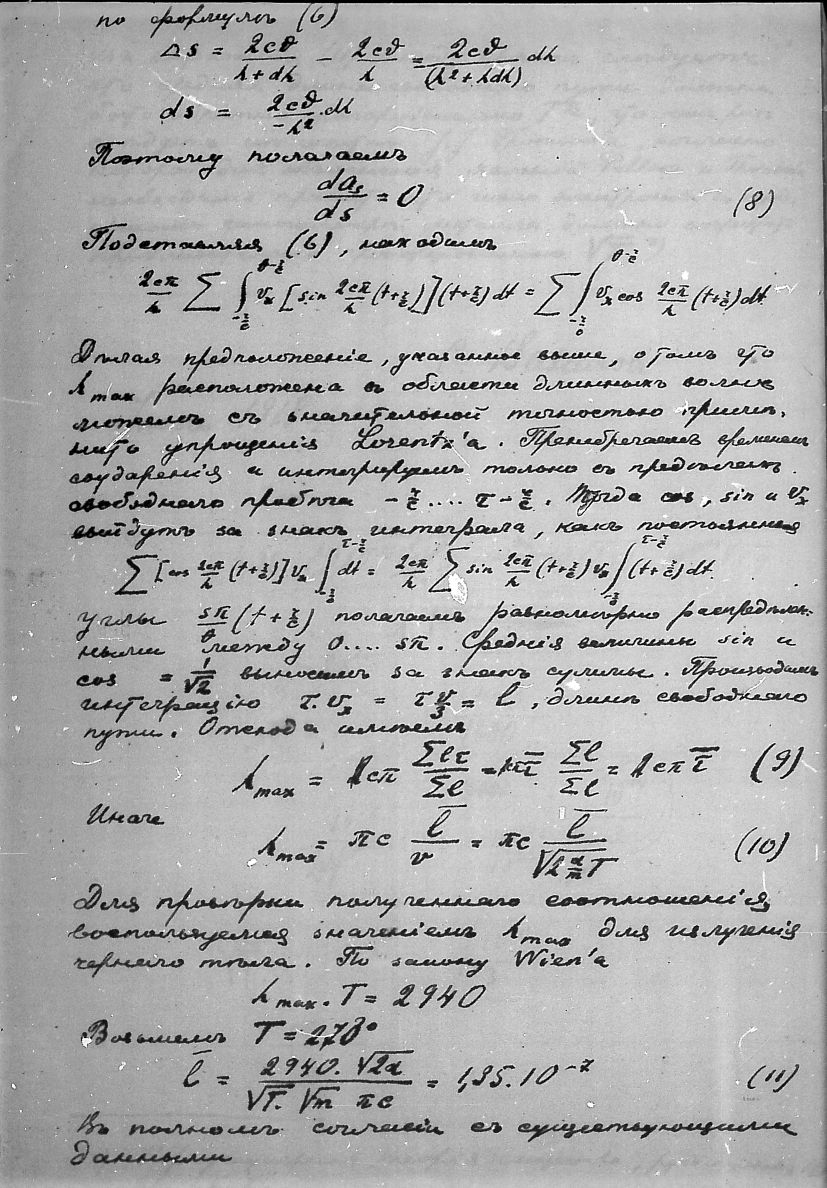 по формулѣ (6)
Δs = 2cϑ/(λ+dλ) − 2cϑ/λ = 2cϑ/(λ²+λdλ) dλ
ds = 2cϑ/−λ² · dλ
Поэтому полагаемъ
da_s/ds = 0 (8)
Подставляя (6), находимъ
2cπ/λ ∑ ∫ v_x [sin 2cπ/λ (t+z/c)] (t+z/c) dt = ∑ ∫ v_x cos 2cπ/λ (t+z/c) dt
Дѣлая предположеніе, указанное выше, о томъ что
λ_max расположена въ области длинныхъ волнъ
можемъ съ значительной точностью примѣ-
нить упрощенія Lorentz'a. Пренебрегаемъ временемъ
соударенія и интегрируемъ только въ предѣлахъ
свободнаго пробѣга −z/c .... τ−z/c. Тогда cos, sin и v_x
выйдутъ за знакъ интеграла, какъ постоянныя
∑ [cos 2cπ/λ (t+z/c)] v_x ∫ dt = 2cπ/λ ∑ sin 2cπ/λ (t+z/c) v_x ∫ (t+z/c) dt.
углы sπ/ϑ (t+z/c) полагаемъ равномѣрно распредѣлен-
ными между 0.... sπ. Среднія величины sin и
cos = 1/√2 выносимъ за знакъ суммы. Производимъ
интеграцію τ.v_x = τ v/3 = l, длинѣ свободнаго
пути. Отсюда имѣемъ
λ_max = cπ ∑lτ/∑l = cπ τ̄ ∑l/∑l = cπ τ̄ (9)
Иначе
λ_max = πc l̄/v = πc l̄/√(2 α/m T) (10)
Для провѣрки полученнаго соотношенія,
воспользуемся значеніемъ λ_max для излученія
чернаго тѣла. По закону Wien'a
λ_max. T = 2940
Возьмемъ T = 273°
l̄ = 2940. √2α / √T. √m πc = 1,35.10⁻⁷ (11)
Въ полномъ согласіи съ существующими
данными